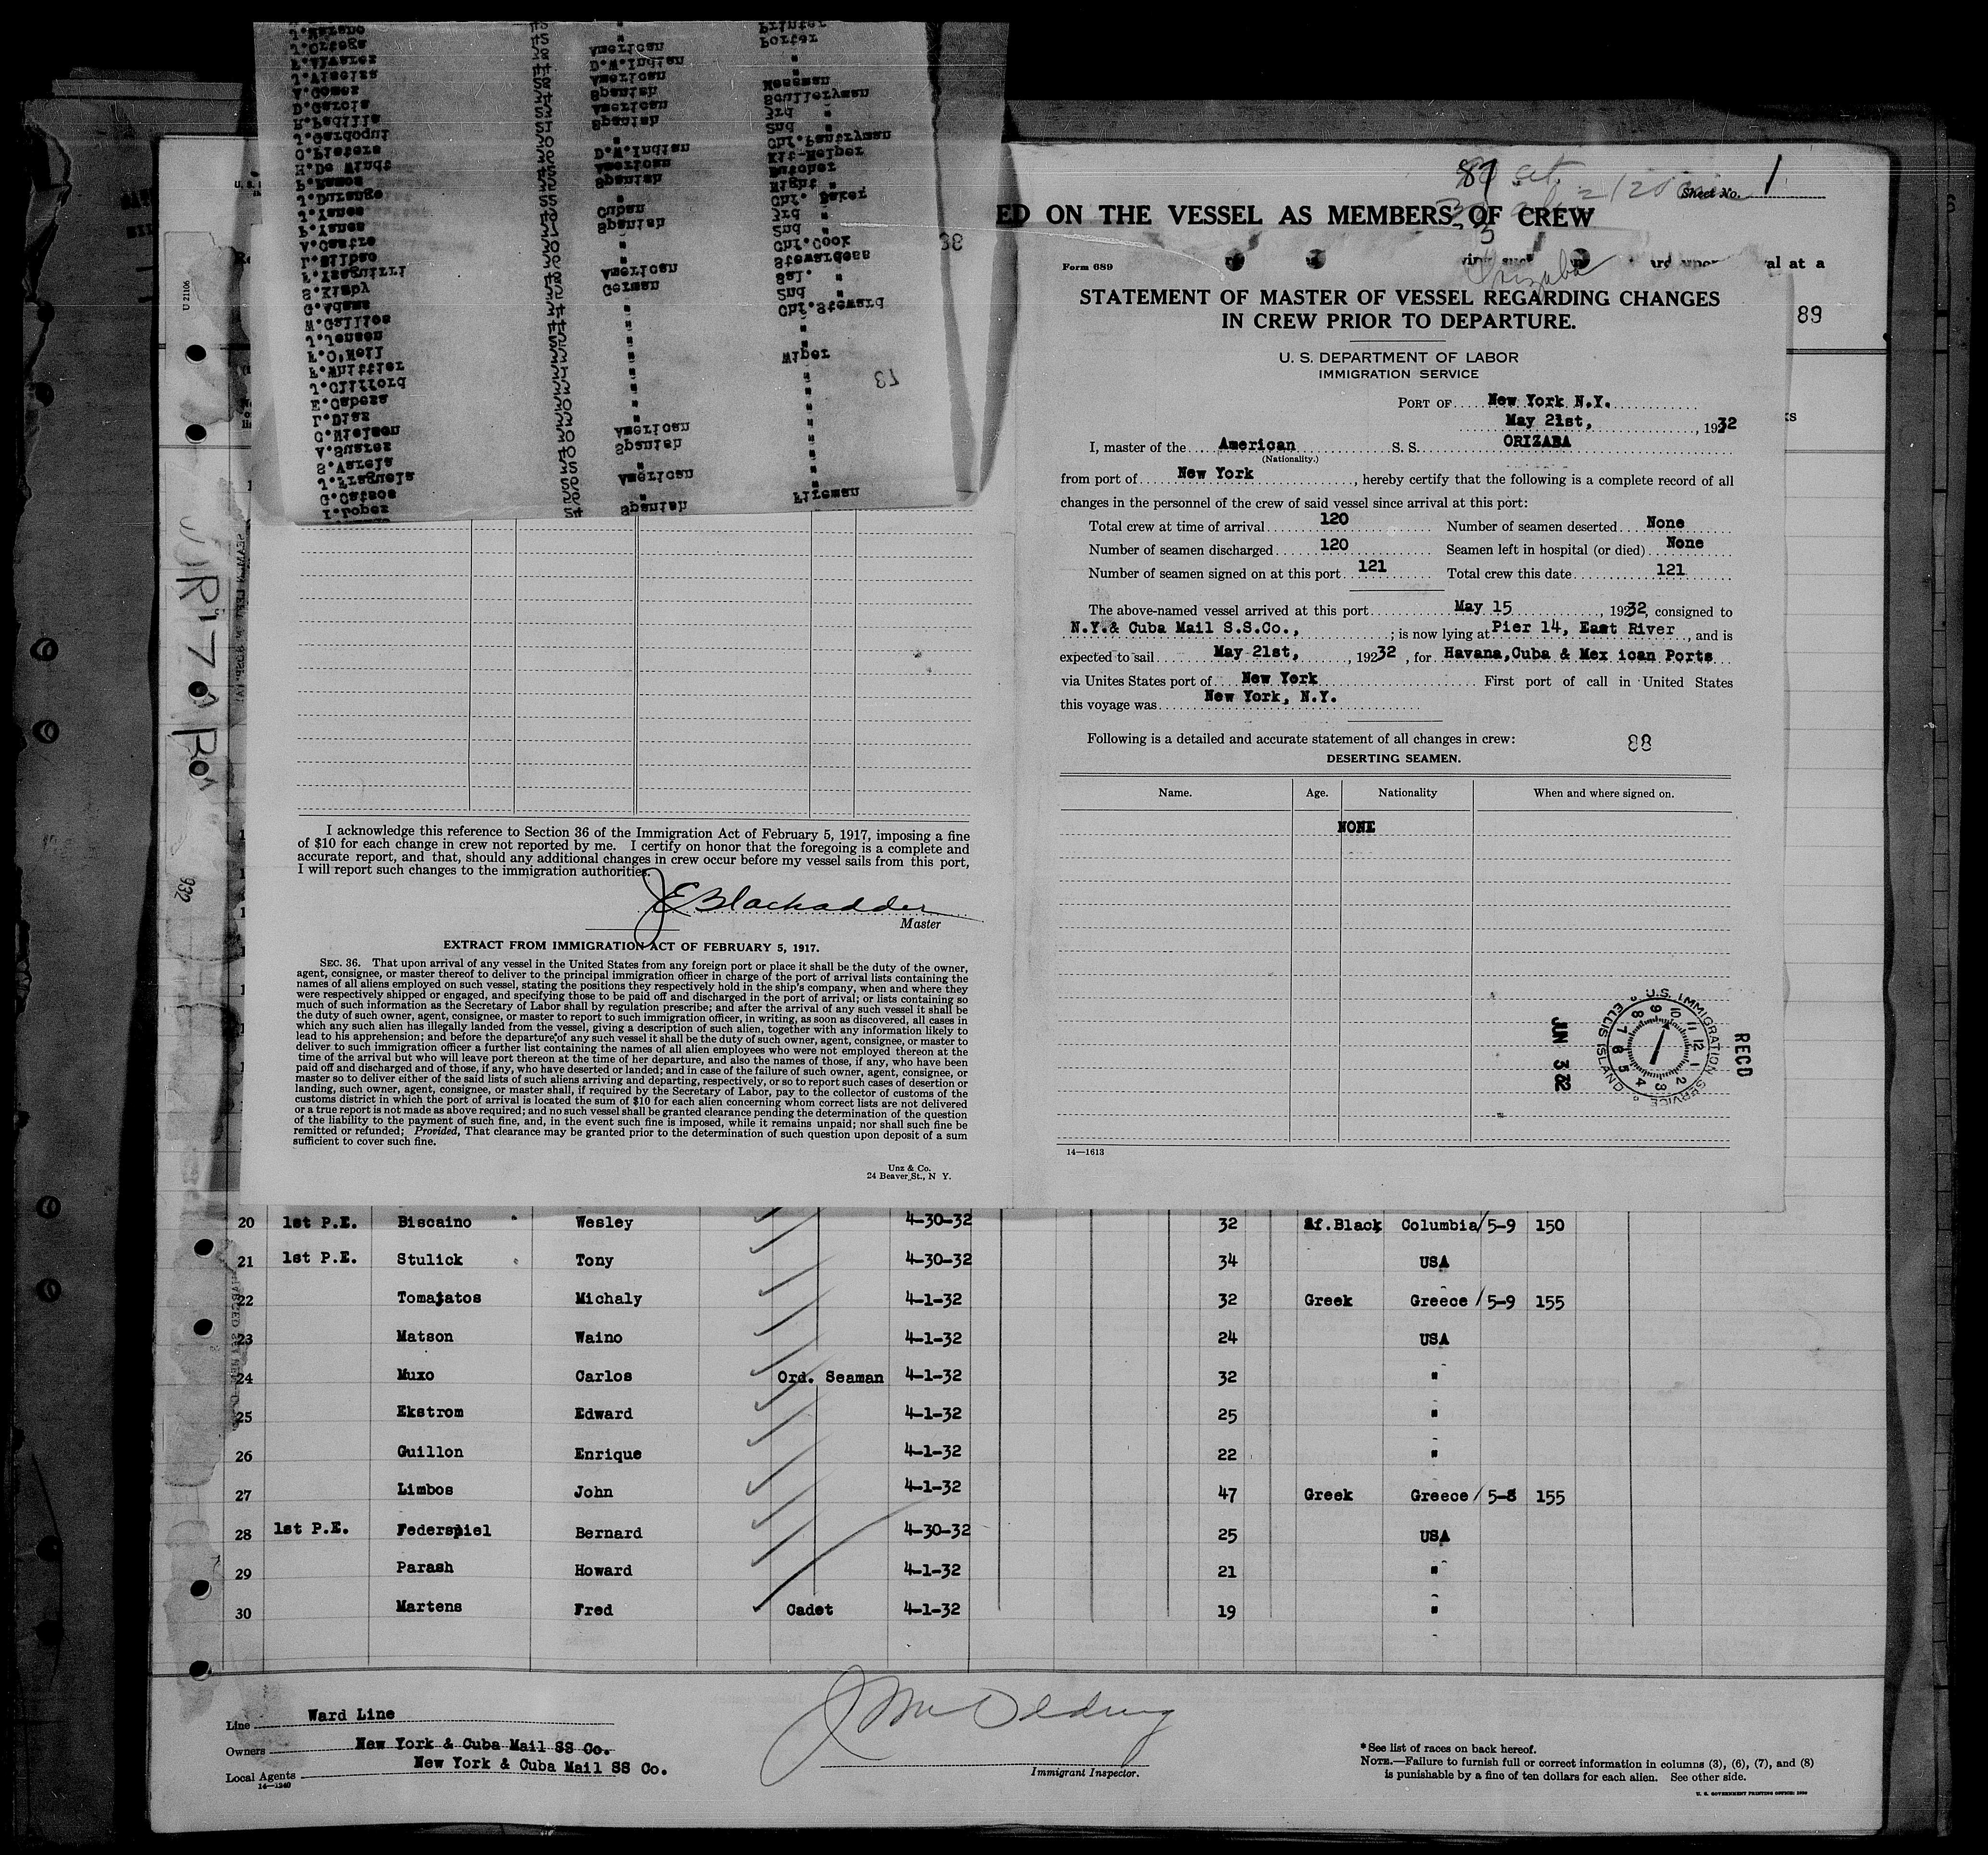 Sheet No. 1
ED ON THE VESSEL AS MEMBERS OF CREW
Orizaba
al at a
89
Form 689
STATEMENT OF MASTER OF VESSEL REGARDING CHANGES
IN CREW PRIOR TO DEPARTURE.
U. S. DEPARTMENT OF LABOR
IMMIGRATION SERVICE
PORT OF New York N.Y.
May 21st, , 1932
I, master of the American S. S. ORIZABA
(Nationality.)
from port of New York , hereby certify that the following is a complete record of all
changes in the personnel of the crew of said vessel since arrival at this port:
Total crew at time of arrival 120 Number of seamen deserted None
Number of seamen discharged 120 Seamen left in hospital (or died) None
Number of seamen signed on at this port 121 Total crew this date 121
The above-named vessel arrived at this port May 15 , 1932 consigned to
N.Y.& Cuba Mail S.S.Co., ; is now lying at Pier 14, East River , and is
expected to sail May 21st, , 1932 , for Havana,Cuba & Mex ican Ports
via Unites States port of New York First port of call in United States
this voyage was New York, N.Y.
Following is a detailed and accurate statement of all changes in crew: 88
DESERTING SEAMEN.
Name. Age. Nationality When and where signed on.
NONE
RECD
U.S. IMMIGRATION SERVICE
ELLIS ISLAND
JUN 3 32
14—1613
I.Lopez 24 Spanish Fireman
G.Catsos
J.Fraguela American
S.Varela
V.Suarez 40 Spanish
C.Nielson 30 American
L.Dias
E.Cabeza
J.Clifford
F.Whittier
F.O'Neil Wiper
J.Jensen
W.Gallios
G.Adams Chf.Steward
S.Kimby German 2nd "
F.Ysaguirri American Sal. "
L.Bilbao Stewardess
V.Castro 30 " Chf.Cook
P.Yanes Spanish 2nd "
J.Yanes Cuban 3rd "
J.Durange Chf. Baker
P.Ramos Spanish Night "
H.De Windt American Butcher
C.Pieters D.W.Indian Kit-Helper
J.Gardoqui 30 " Chf.Pantryman
R.Padilla Spanish 2nd "
D.Garcia American 3rd "
A.Gomez Spanish Sculleryman
J.Viseisa American Messman
F.Alvarez D.W.Indian "
J.Ortega American Porter
J.Marano " Printer
88
73
I acknowledge this reference to Section 36 of the Immigration Act of February 5, 1917, imposing a fine
of $10 for each change in crew not reported by me. I certify on honor that the foregoing is a complete and
accurate report, and that, should any additional changes in crew occur before my vessel sails from this port,
I will report such changes to the immigration authorities.
J E Blackadder
Master
EXTRACT FROM IMMIGRATION ACT OF FEBRUARY 5, 1917.
SEC. 36. That upon arrival of any vessel in the United States from any foreign port or place it shall be the duty of the owner,
agent, consignee, or master thereof to deliver to the principal immigration officer in charge of the port of arrival lists containing the
names of all aliens employed on such vessel, stating the positions they respectively hold in the ship's company, when and where they
were respectively shipped or engaged, and specifying those to be paid off and discharged in the port of arrival; or lists containing so
much of such information as the Secretary of Labor shall by regulation prescribe; and after the arrival of any such vessel it shall be
the duty of such owner, agent, consignee, or master to report to such immigration officer, in writing, as soon as discovered, all cases in
which any such alien has illegally landed from the vessel, giving a description of such alien, together with any information likely to
lead to his apprehension; and before the departure of any such vessel it shall be the duty of such owner, agent, consignee, or master to
deliver to such immigration officer a further list containing the names of all alien employees who were not employed thereon at the
time of the arrival but who will leave port thereon at the time of her departure, and also the names of those, if any, who have been
paid off and discharged and of those, if any, who have deserted or landed; and in case of the failure of such owner, agent, consignee, or
master so to deliver either of the said lists of such aliens arriving and departing, respectively, or so to report such cases of desertion or
landing, such owner, agent, consignee, or master shall, if required by the Secretary of Labor, pay to the collector of customs of the
customs district in which the port of arrival is located the sum of $10 for each alien concerning whom correct lists are not delivered
or a true report is not made as above required; and no such vessel shall be granted clearance pending the determination of the question
of the liability to the payment of such fine, and, in the event such fine is imposed, while it remains unpaid; nor shall such fine be
remitted or refunded; Provided, That clearance may be granted prior to the determination of such question upon deposit of a sum
sufficient to cover such fine.
Unz & Co.
24 Beaver St., N Y.
U 21106
932
20 1st P.E. Biscaino Wesley 4-30-32 32 Af.Black Columbia/ 5-9 150
21 1st P.E. Stulick Tony 4-30-32 34 USA
22 Tomajatos Michaly 4-1-32 32 Greek Greece / 5-9 155
23 Matson Waino 4-1-32 24 USA
24 Muxo Carlos Ord. Seaman 4-1-32 32 "
25 Ekstrom Edward 4-1-32 25 "
26 Guillon Enrique 4-1-32 22 "
27 Limbos John 4-1-32 47 Greek Greece / 5-8 155
28 1st P.E. Federspiel Bernard 4-30-32 25 USA
29 Parash Howard 4-1-32 21 "
30 Martens Fred Cadet 4-1-32 19 "
Line Ward Line
Owners New York & Cuba Mail SS Co.
Local Agents New York & Cuba Mail SS Co.
14—1240
Immigrant Inspector.
*See list of races on back hereof.
NOTE.—Failure to furnish full or correct information in columns (3), (6), (7), and (8)
is punishable by a fine of ten dollars for each alien. See other side.
U. S. GOVERNMENT PRINTING OFFICE: 1930